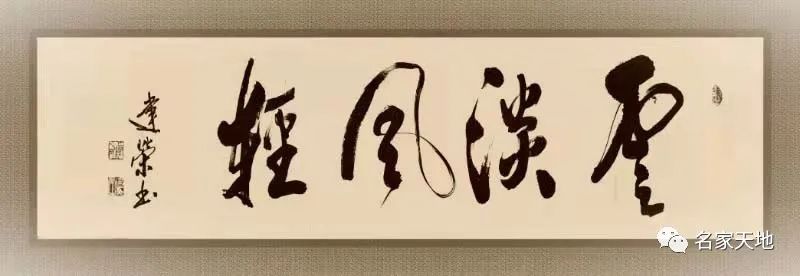 雲淡風輕
達榮书
名家天地